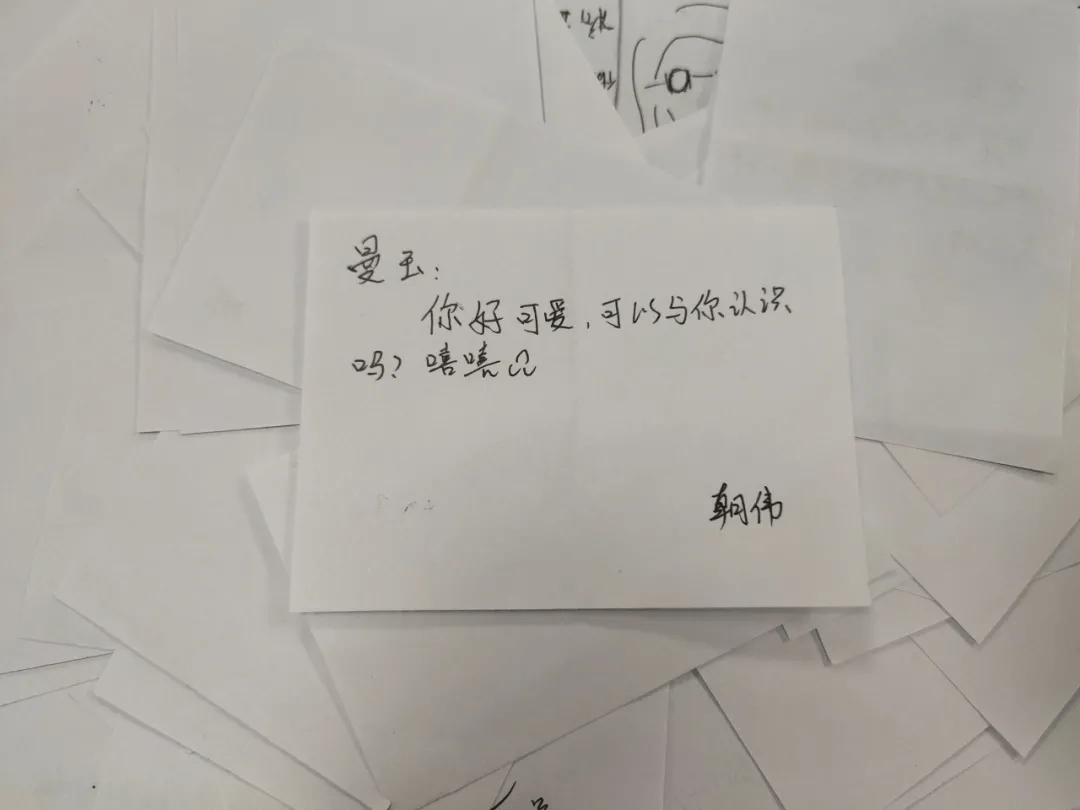 曼玉：
你好可爱，可以与你认识
吗？嘻嘻
朝伟